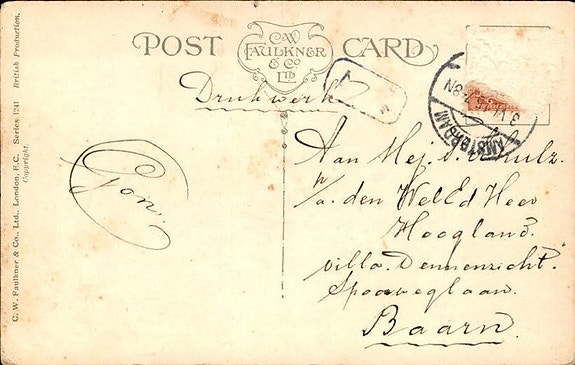 POST CARD
C.W.
FAULKNER
& Co
LTD
Drukwerk
AMSTERDAM
Gon.
Aan Mej.
p/a. den WelEd Heer
Hoogland.
villa. Dennenzicht.
Spoorweglaan.
Baarn.
C. W. Faulkner & Co., Ltd., London, E.C. Series 1241 British Production.
Copyright.